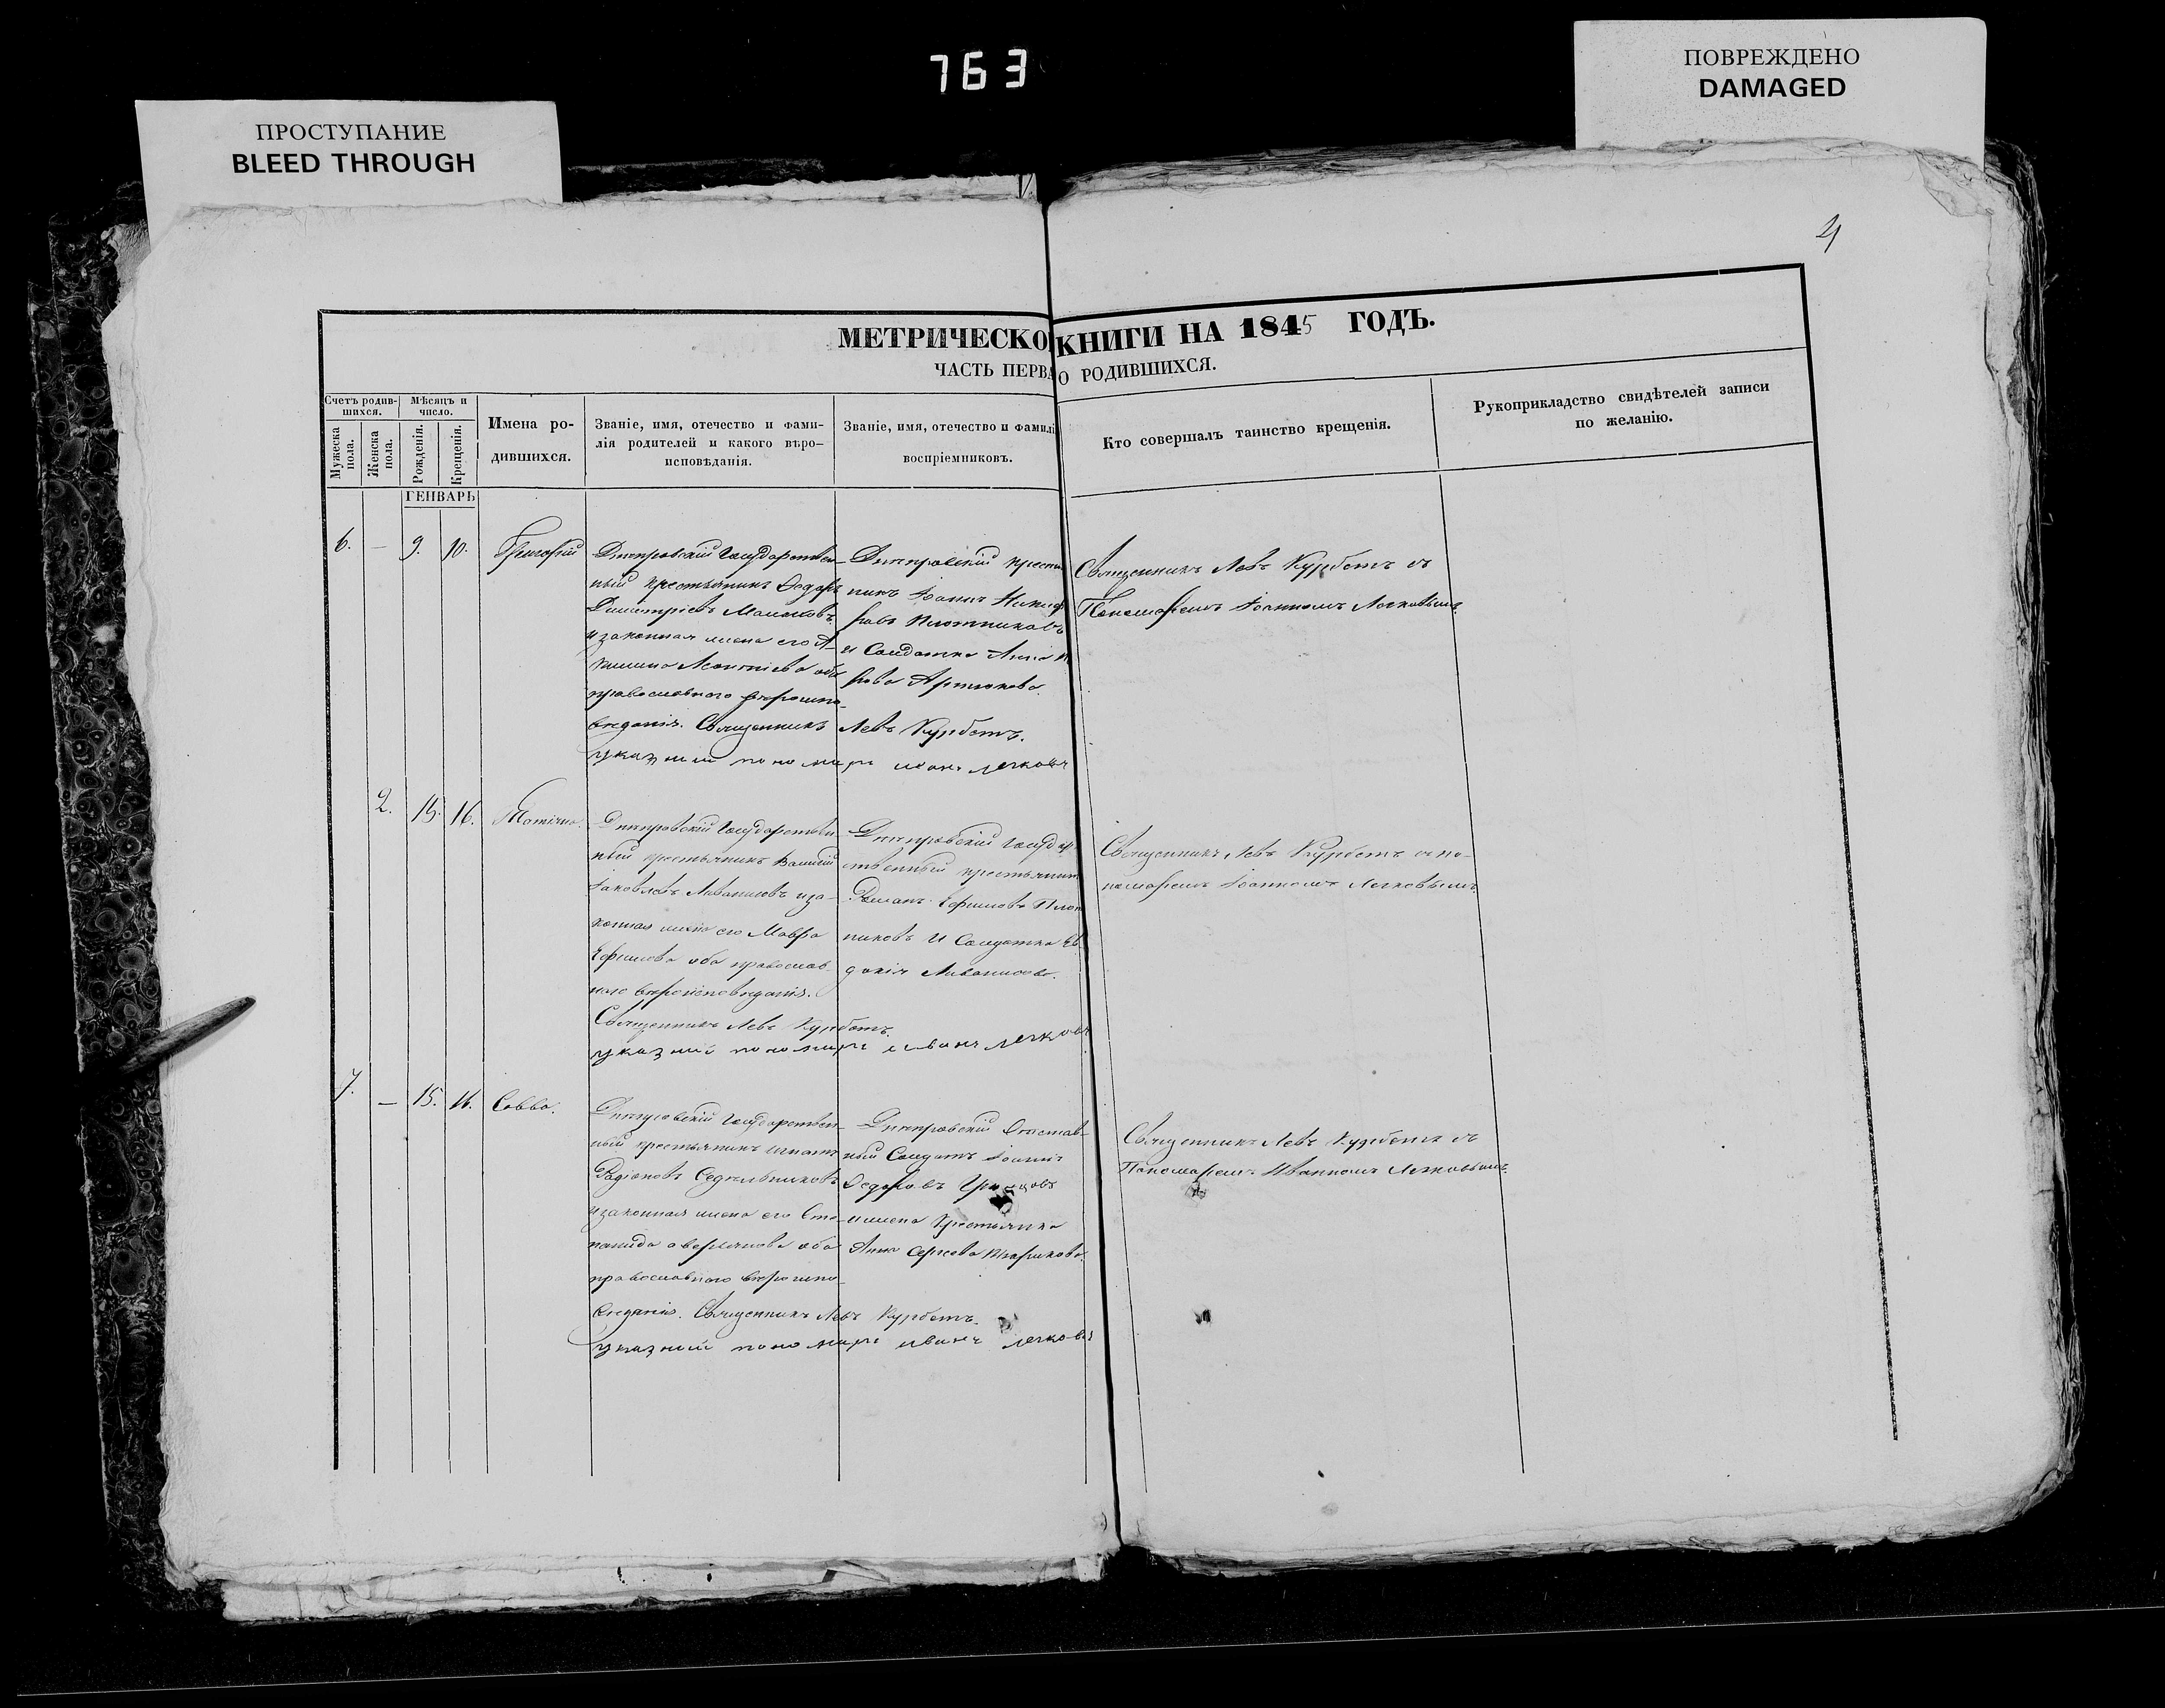 763
ПРОСТУПАНИЕ
BLEED THROUGH
ПОВРЕЖДЕНО
DAMAGED
4
МЕТРИЧЕСКО КНИГИ НА 1845 ГОДЪ.
ЧАСТЬ ПЕРВА О РОДИВШИХСЯ.
Счетъ родив-
шихся.
Мужеска
пола.
Женска
пола.
Мѣсяцъ и
число.
Рожденія.
Крещенія.
Имена ро-
дившихся.
Званіе, имя, отечество и фами-
лія родителей и какого вѣро-
исповѣданія.
Званіе, имя, отечество и фамилі
воспріемниковъ.
Кто совершалъ таинство крещенія.
Рукоприкладство свидѣтелей записи
по желанію.
ГЕНВАРЬ
6. — 9. 10. Григорій
Днепровскій Государствен-
ный крестьянинъ Ѳедоръ
Димитріевъ
и законная жена его А-
Леонтіева оба
православнаго вѣроиспо-
веданія. Священникъ Левъ Курбетъ.
указный пономарь иванъ легковъ
Днепровскій крестья
нинъ Іоаннъ
Плотниковъ
и Солдатка Анна
Артюхова.
Священникъ Левъ Курбетъ съ
Пономаремъ Іоанномъ Легковымъ.
2. 15. 16. Татіяна.
Днепровскій Государствен-
ный крестьянинъ Василій
Іаковлевъ и за-
конная жена его Мавра
Ефимова оба православ-
наго вероисповеданія.
Священникъ Левъ Курбетъ.
указный пономарь иванъ легковъ
Днепровскій Государ
ственный крестьянин
Романъ Ефимовъ Плот
никовъ и Солдатка Ев-
докія
Священникъ Левъ Курбетъ съ по-
номаремъ Іоанномъ Легковымъ.
7. — 15. 16. Савва.
Днепровскій Государствен-
ный крестьянинъ Игнатій
Радіоновъ Седельниковъ
и законная жена его Сте-
панида Аверьянова оба
православнаго вероиспо-
веданія. Священникъ Левъ Курбетъ.
указный пономарь иванъ легковъ
Днепровскій Отстав-
ный Солдатъ Іоаннъ
Ѳедоровъ
крестьянка
Анна Сергеева
Священникъ Левъ Курбетъ съ
Пономаремъ Иванномъ Легковымъ.